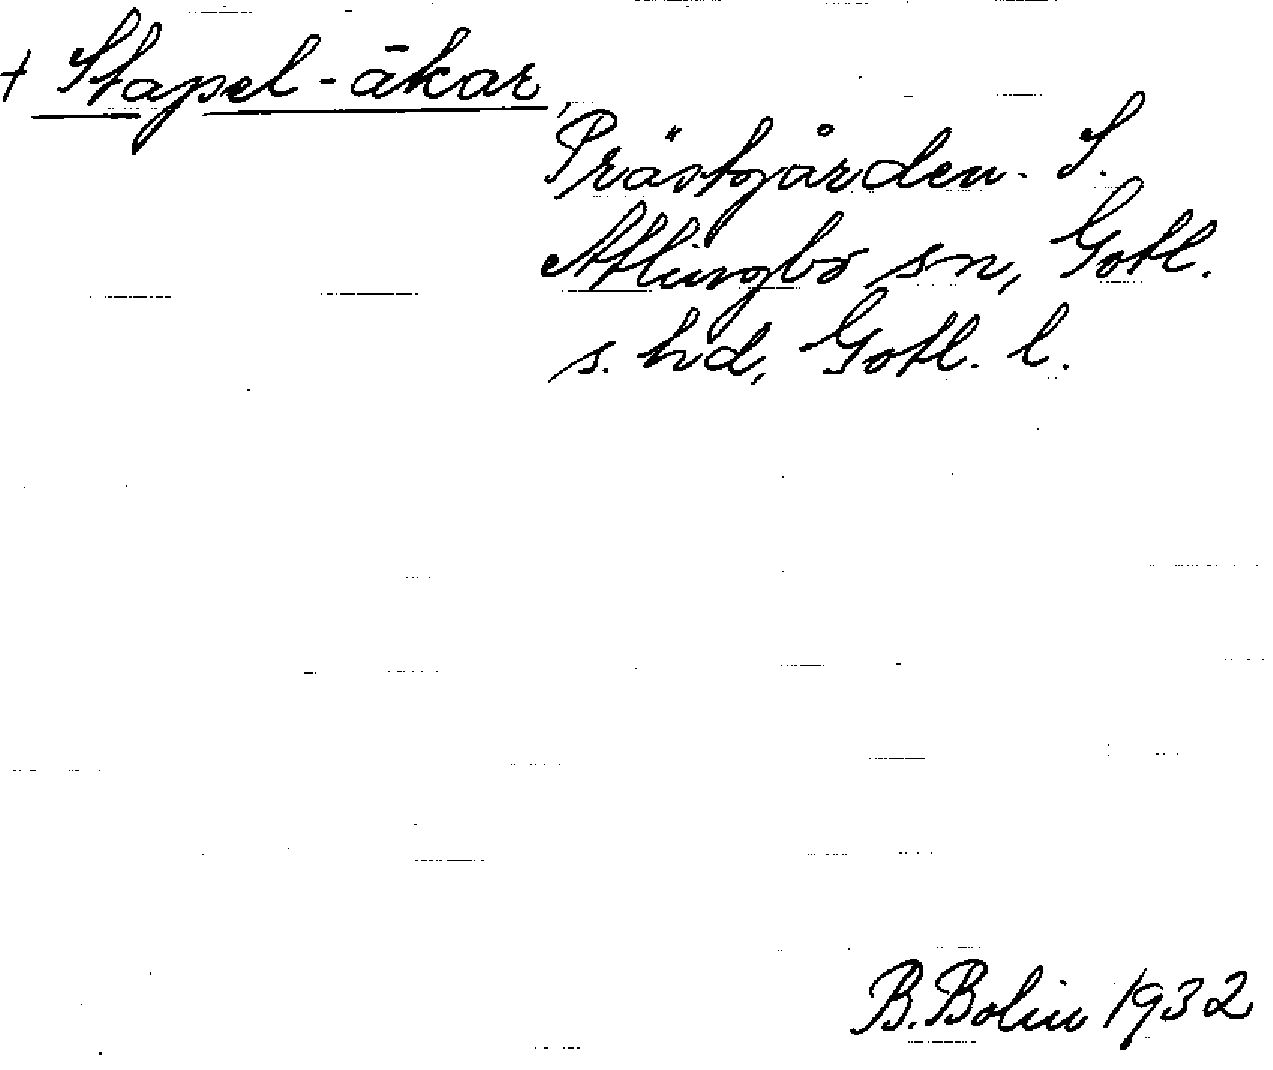 + Stapel-ākar,
Prästgården. S.
Atlingbo sn, Gotl.
s. hd, Gotl. l.
B. Bolin 1932